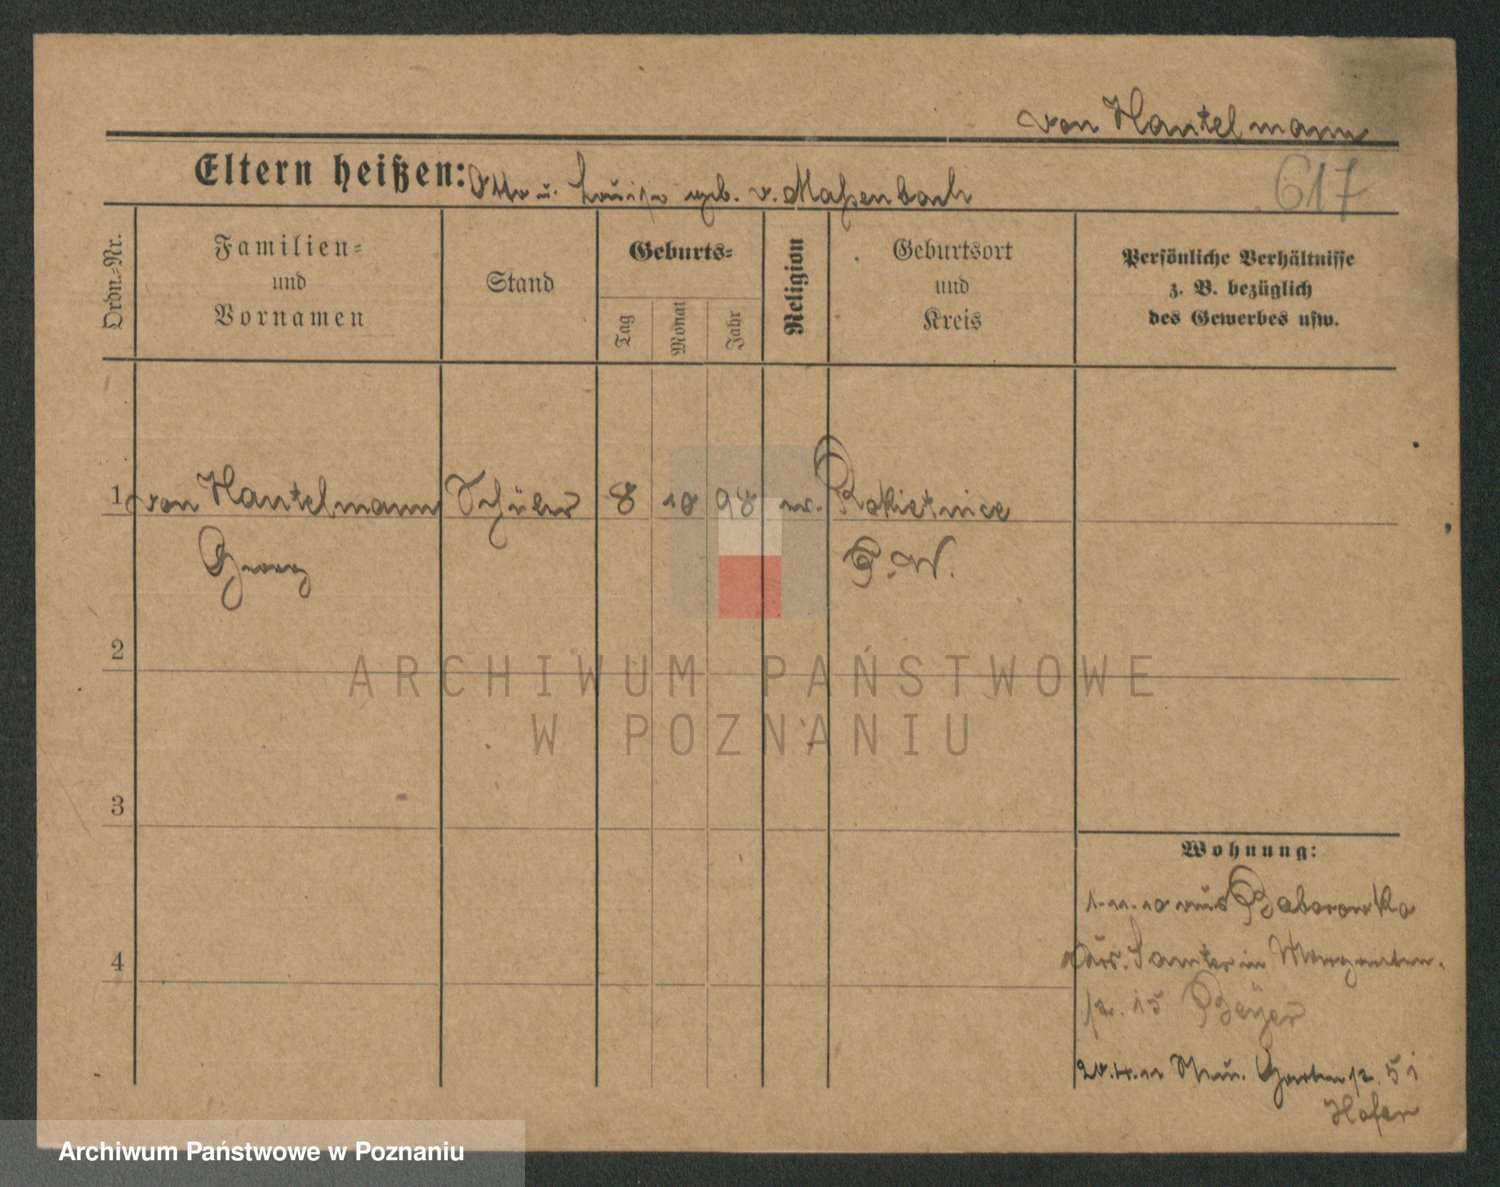 von Hantelmann
Eltern heißen: Otto u. Louise geb. v. Maßenbach
617
Ordn.-Nr.
Familien-
und
Vornamen
Stand
Geburts-
Tag
Monat
Jahr
Religion
Geburtsort
und
Kreis
Persönliche Verhältnisse
z. B. bezüglich
des Gewerbes usw.
1 von Hantelmann Schüler 8 10 98 ev. Rokietnice
Georg P. W.
2
3
4
Wohnung:
1.11.10 aus Baborowko
Krs. Samter in
15 Beyer
20.4.11 Garten 51
Hofer
ARCHIWUM PAŃSTWOWE
W POZNANIU
Archiwum Państwowe w Poznaniu